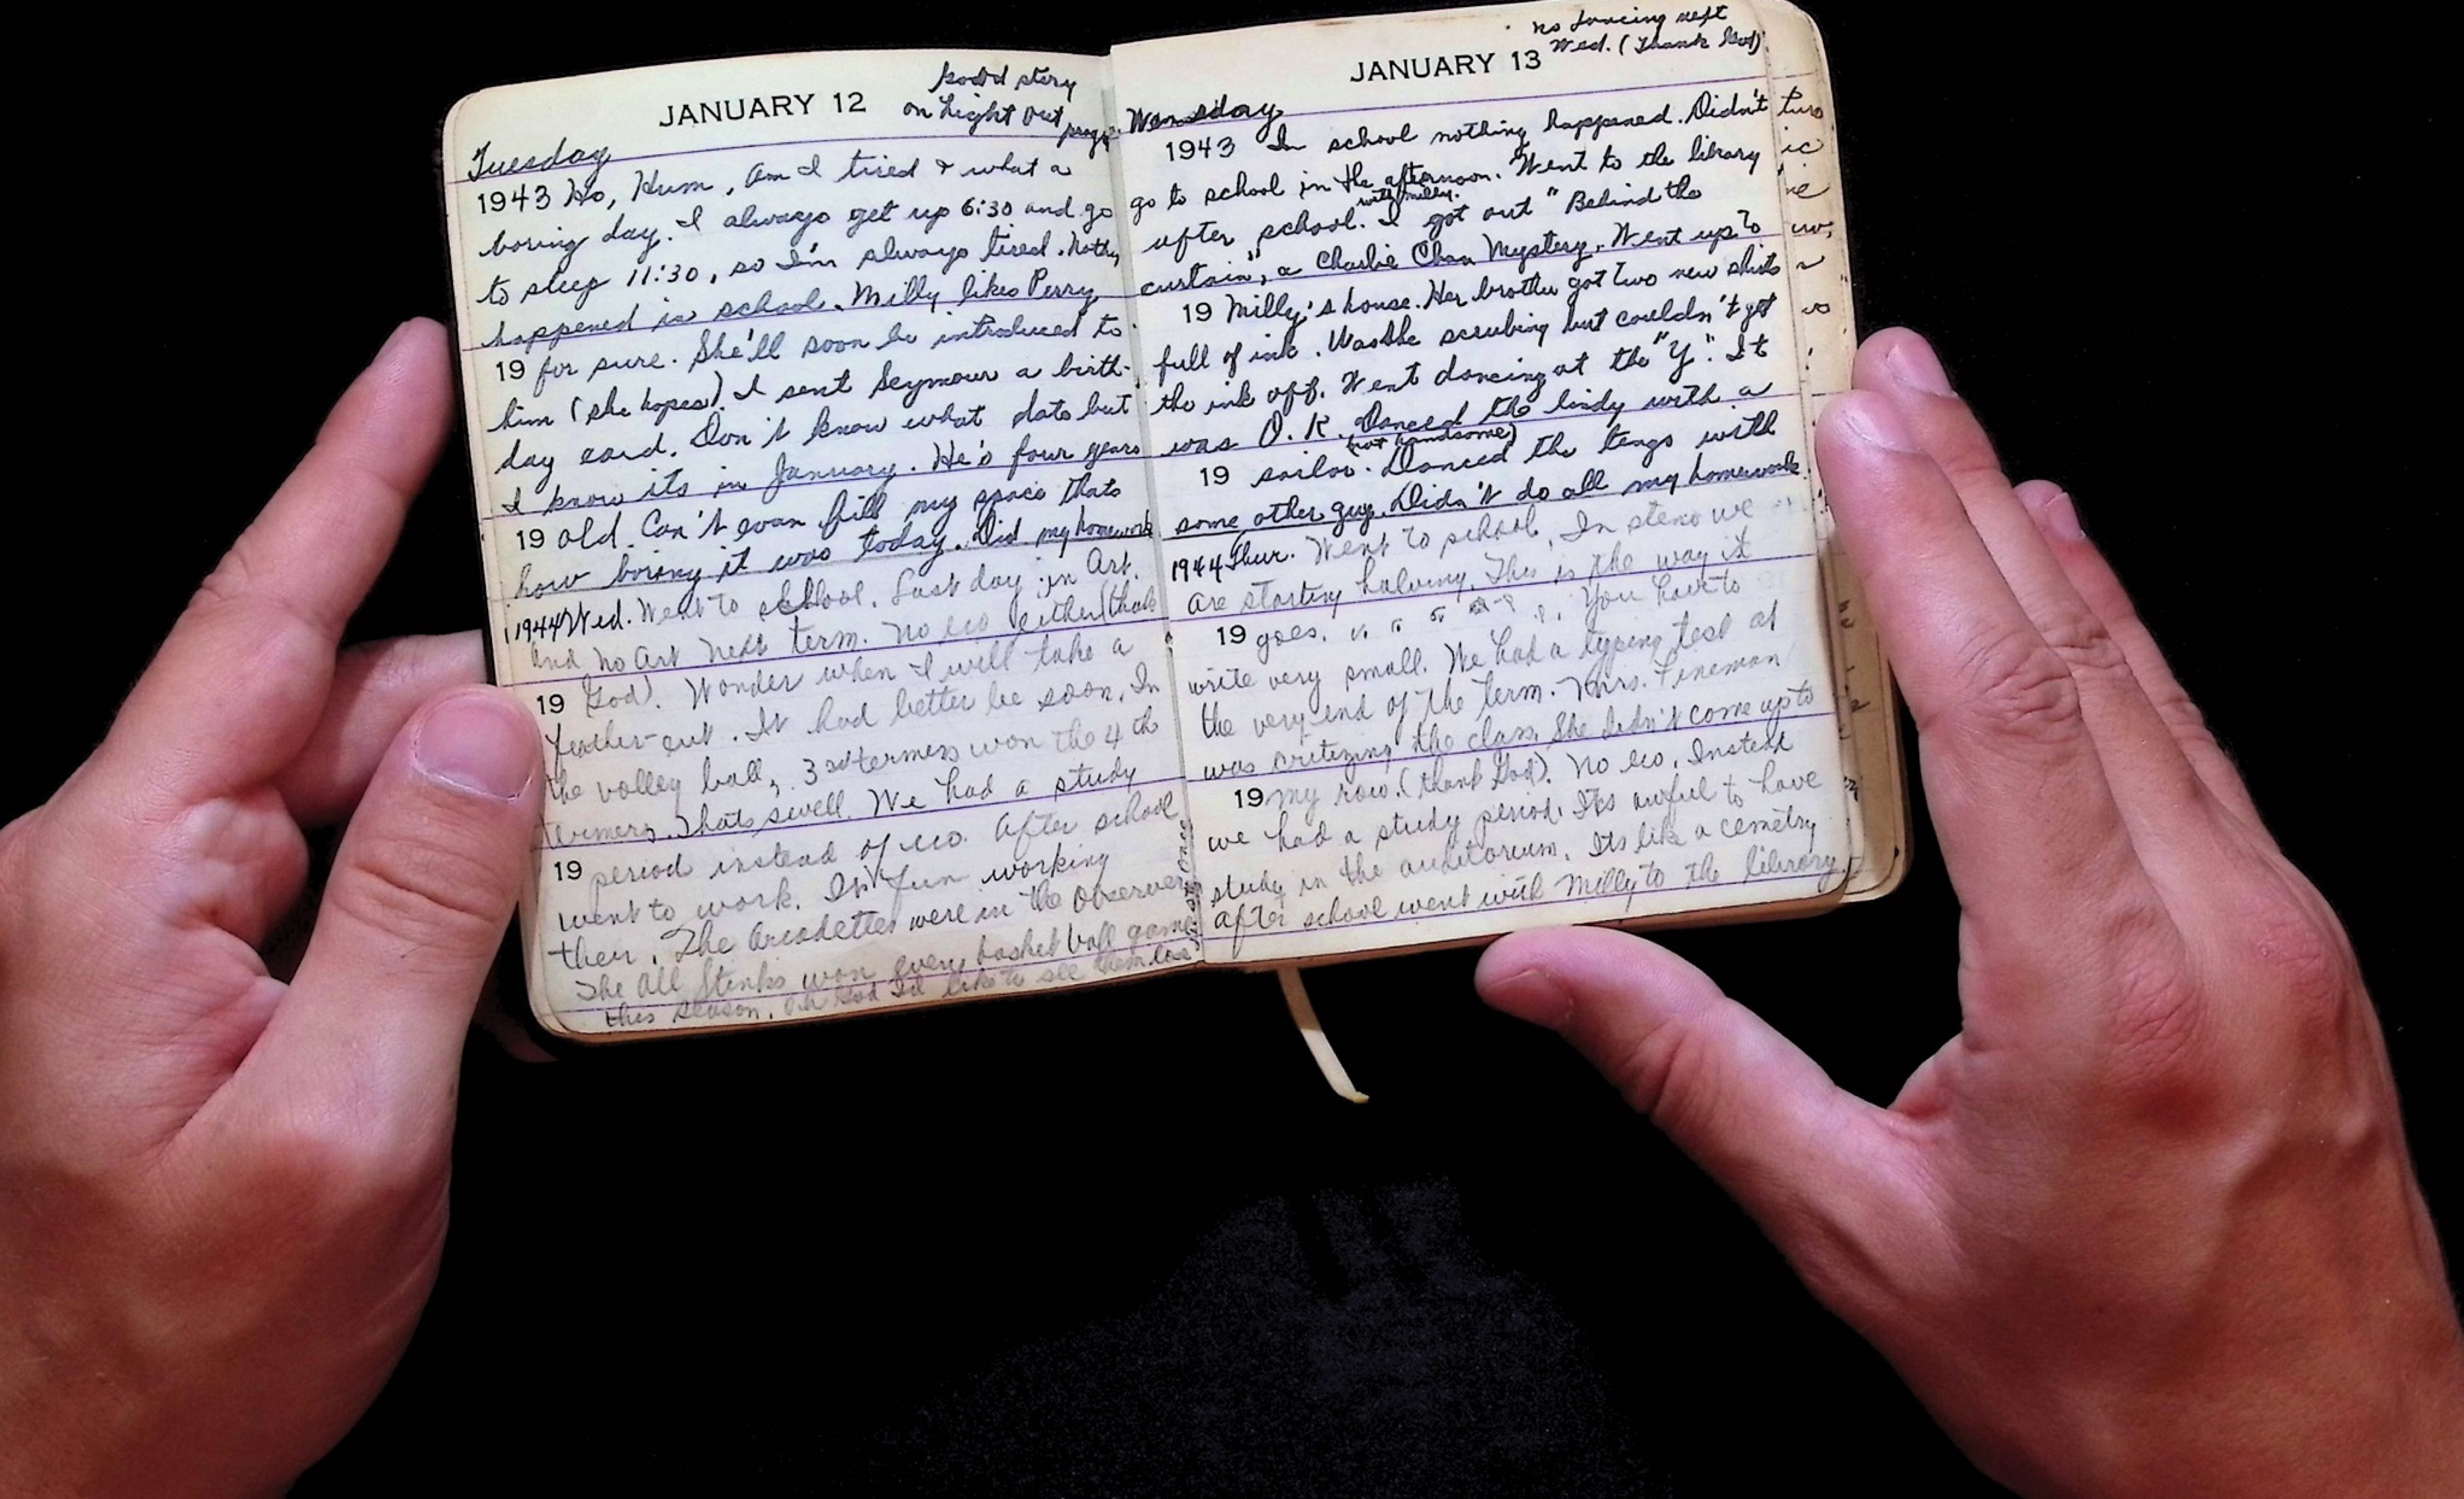 JANUARY 12
Good story
on Light Out
progr.
Tuesday
1943 Ho, Hum, Am I tired & what a
boring day. I always get up 6:30 and go
to sleep 11:30, so I'm always tired. Nothing
happened in school. Milly likes Perry
19 for sure. She'll soon be introduced to
him (she hopes). I sent Seymour a birth-
day card. Don't know what date but
I know its in January. He's four years
19 old. Can't even fill my space thats
how boring it was today. Did my homework
1944 Wed. Went to school. Last day in Art.
and no Art next term. No eco either (thank
19 God). Wonder when I will take a
feather-cut. It had better be soon. In
the volley ball, 3rd termers won the 4th
termers. Thats swell. We had a study
19 period instead of eco. After school
went to work. Isn't fun working
ther. The Arcadettes were in the Observer
The All Stinks won every basket ball game
this season. Oh God I'd like to see them lose
JANUARY 13
no dancing next
Wed. (Thank God)
Wensday
1943 In school nothing happened. Didn't
go to school in the afternoon. Went to the library
after school. with Milly. I got out "Behind the
curtain", a Charlie Chan Mystery. Went up to
19 Milly's house. Her brother got two new shirts
full of ink. Was she scrubing but couldn't get
the ink off. Went dancing at the "Y". It
was O.K. Danced the lindy with a
19 sailor. (not handsome) Danced the tango with
some other guy. Didn't do all my homework
1944 Thur. Went to school, In steno we
are starting halving. This is the way it
19 goes. You have to
write very small. We had a typing test at
the very end of the term. Mrs. Fineman
was critizing the class. She didn't come up to
19 my row. (thank God). No eco, Instead
we had a study period. Its awful to have
study in the auditorium. Its like a cemetry
After school went with Milly to the library.